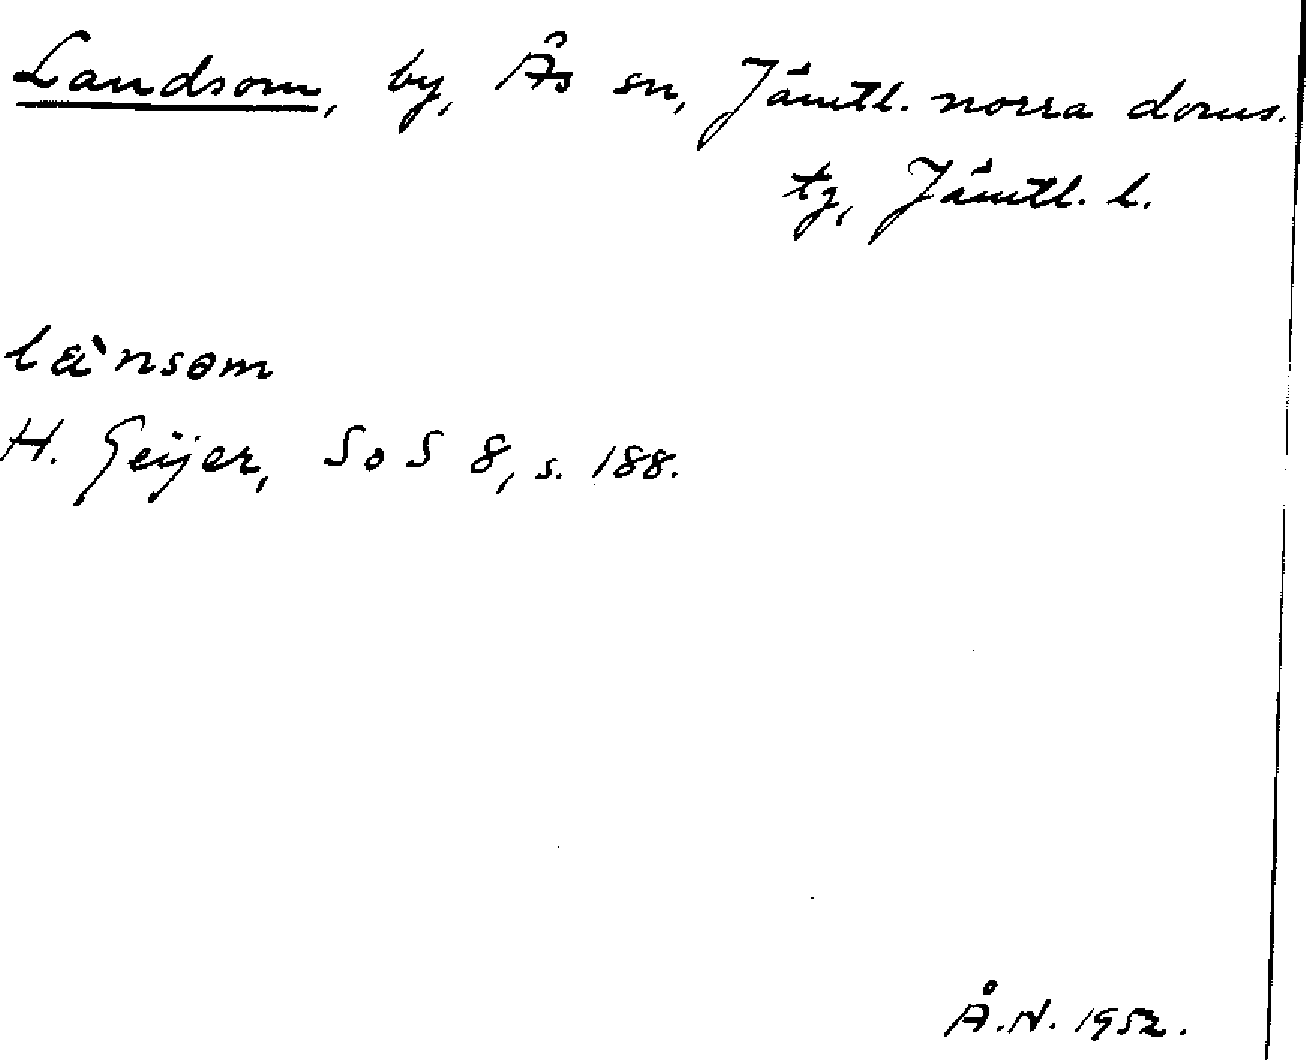 Landsom, by, Ås sn, Jämtl. norra doms.
tg, Jämtl. l.
læ`nsəm
H. Geijer, SoS 8, s. 188.
Å.N. 1952.